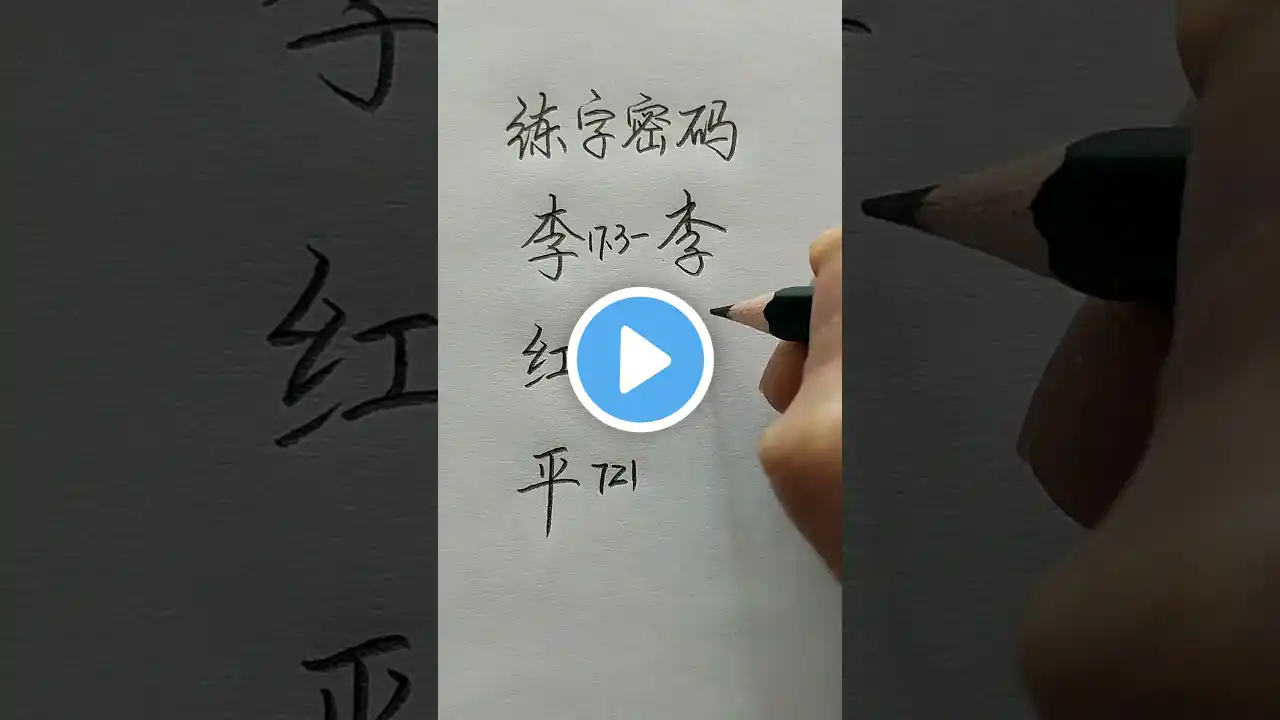 练字密码
李 17.3- 李
红
平 721